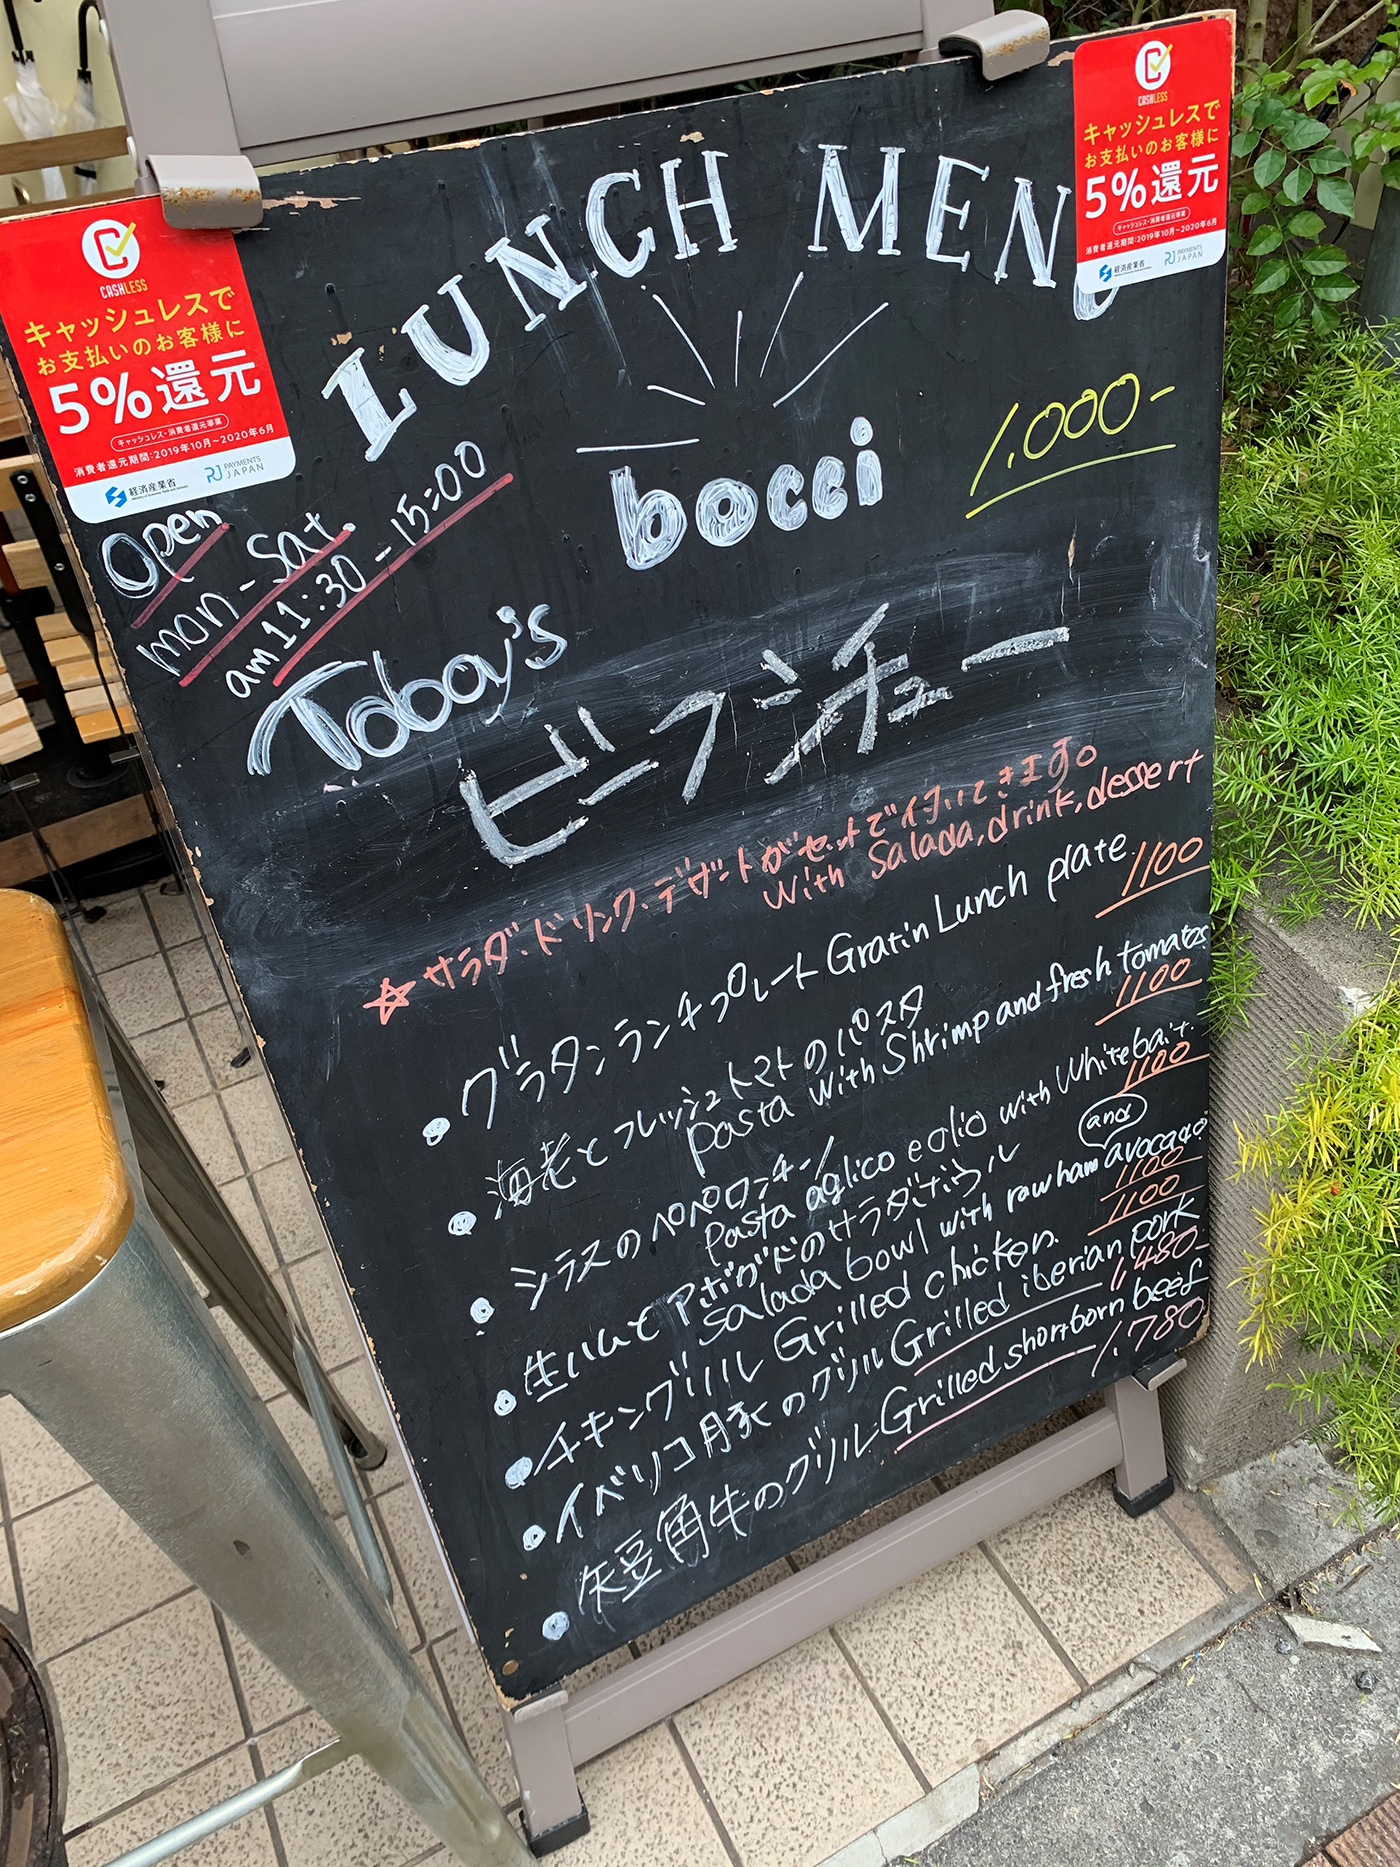 CASHLESS
キャッシュレスで
お支払いのお客様に
5%還元
キャッシュレス・消費者還元事業
消費者還元期間:2019年10月~2020年6月
経済産業省
PAYMENTS JAPAN
CASHLESS
キャッシュレスで
お支払いのお客様に
5%還元
キャッシュレス・消費者還元事業
消費者還元期間:2019年10月~2020年6月
経済産業省
PAYMENTS JAPAN
LUNCH MENU
bocci
1.000-
Open
mon-Sat.
am11:30-15:00
Today's
ビーフシチュー
☆サラダ・ドリンク・デザートがセットで付いてきます。
with Salada, drink, dessert
・グラタンランチプレート Gratin Lunch plate 1100
・海老とフレッシュトマトのパスタ
pasta with Shrimp and fresh tomatos 1100
・シラスのペペロンチーノ
pasta aglico e olio with Whitebait. 1100
・生ハムとアボガドのサラダボウル
salada bowl with raw ham and avocado 1100
・チキングリル Grilled chicken. 1100
・イベリコ豚のグリル Grilled iberian pork 1,480-
・短角牛のグリル Grilled shortborn beef 1.780